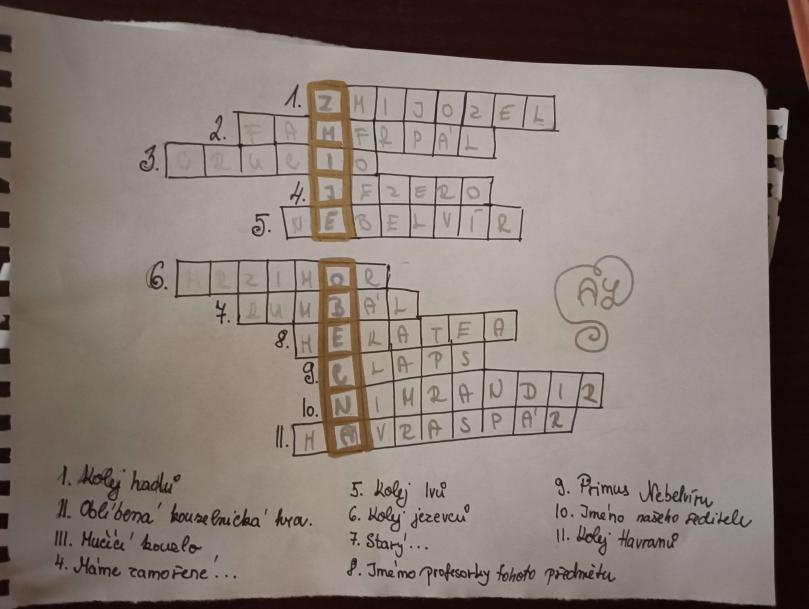 1. ZMIJOZEL
2. FAMFRPÁL
3. CRUCIO
4. JEZERO
5. NEBELVÍR
6. MRZIMOR
7. RUMBÁL
8. HEKATEA
9. CLAPS
10. NIMRANDIR
11. HAVRASPÁR
1. Kolej hadů
II. Oblíbená kouzelnická hra.
III. Mučící kouzlo
4. Máme zamořené...
5. Kolej lvů
6. Kolej jezevců
7. Starý...
8. Jméno profesorky tohoto předmětu
9. Primus Nebelvíru
10. Jméno našeho ředitele
11. Kolej Havranů